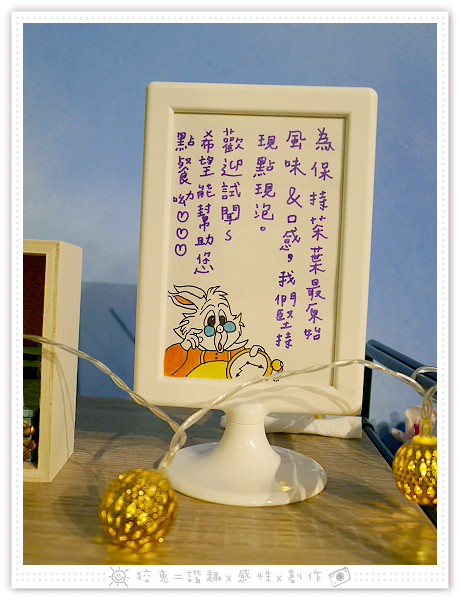 為保持茶葉最原始
風味&口感，我們堅持
現點現泡。
歡迎試聞~
希望能幫助您
點餐呦♡♡♡
狡兔=諧趣x感性x創作